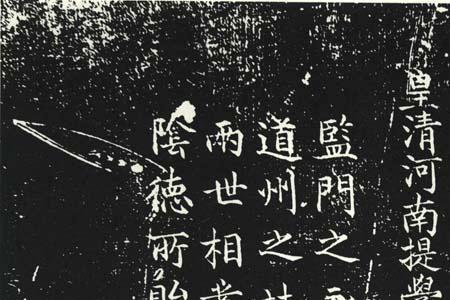 皇清河南提學
監門之
道州之
兩世相業
陰德所貽